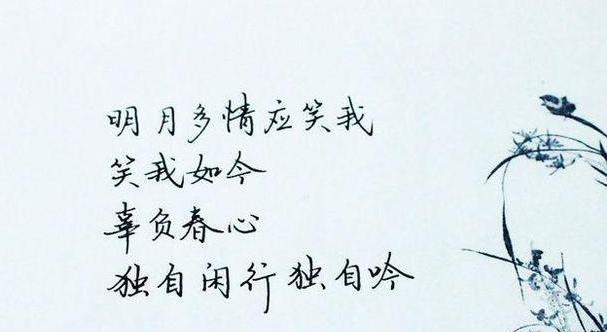 明月多情应笑我
笑我如今
辜负春心
独自闲行独自吟